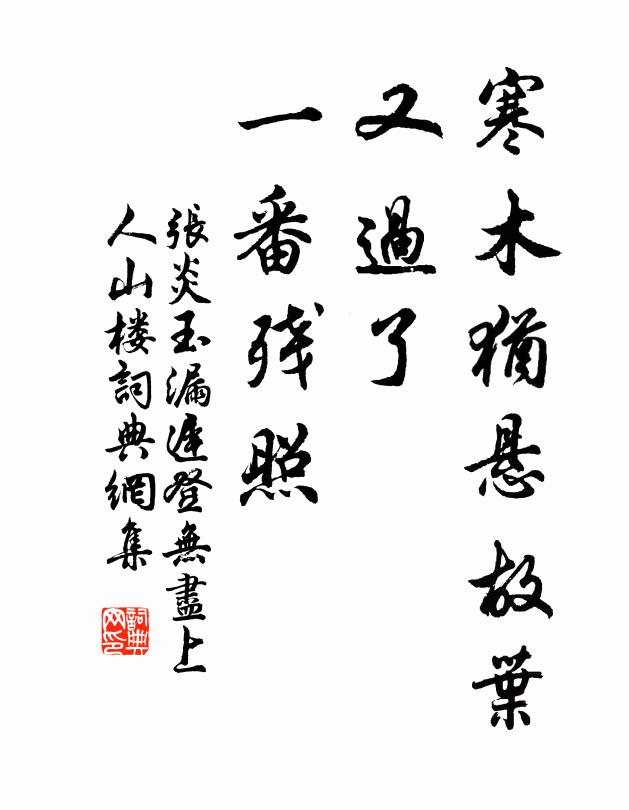 寒木猶悬故葉
又過了
一番残照
張炎玉漏遲登無盡上
人山楼詞典網集
詞典
网印